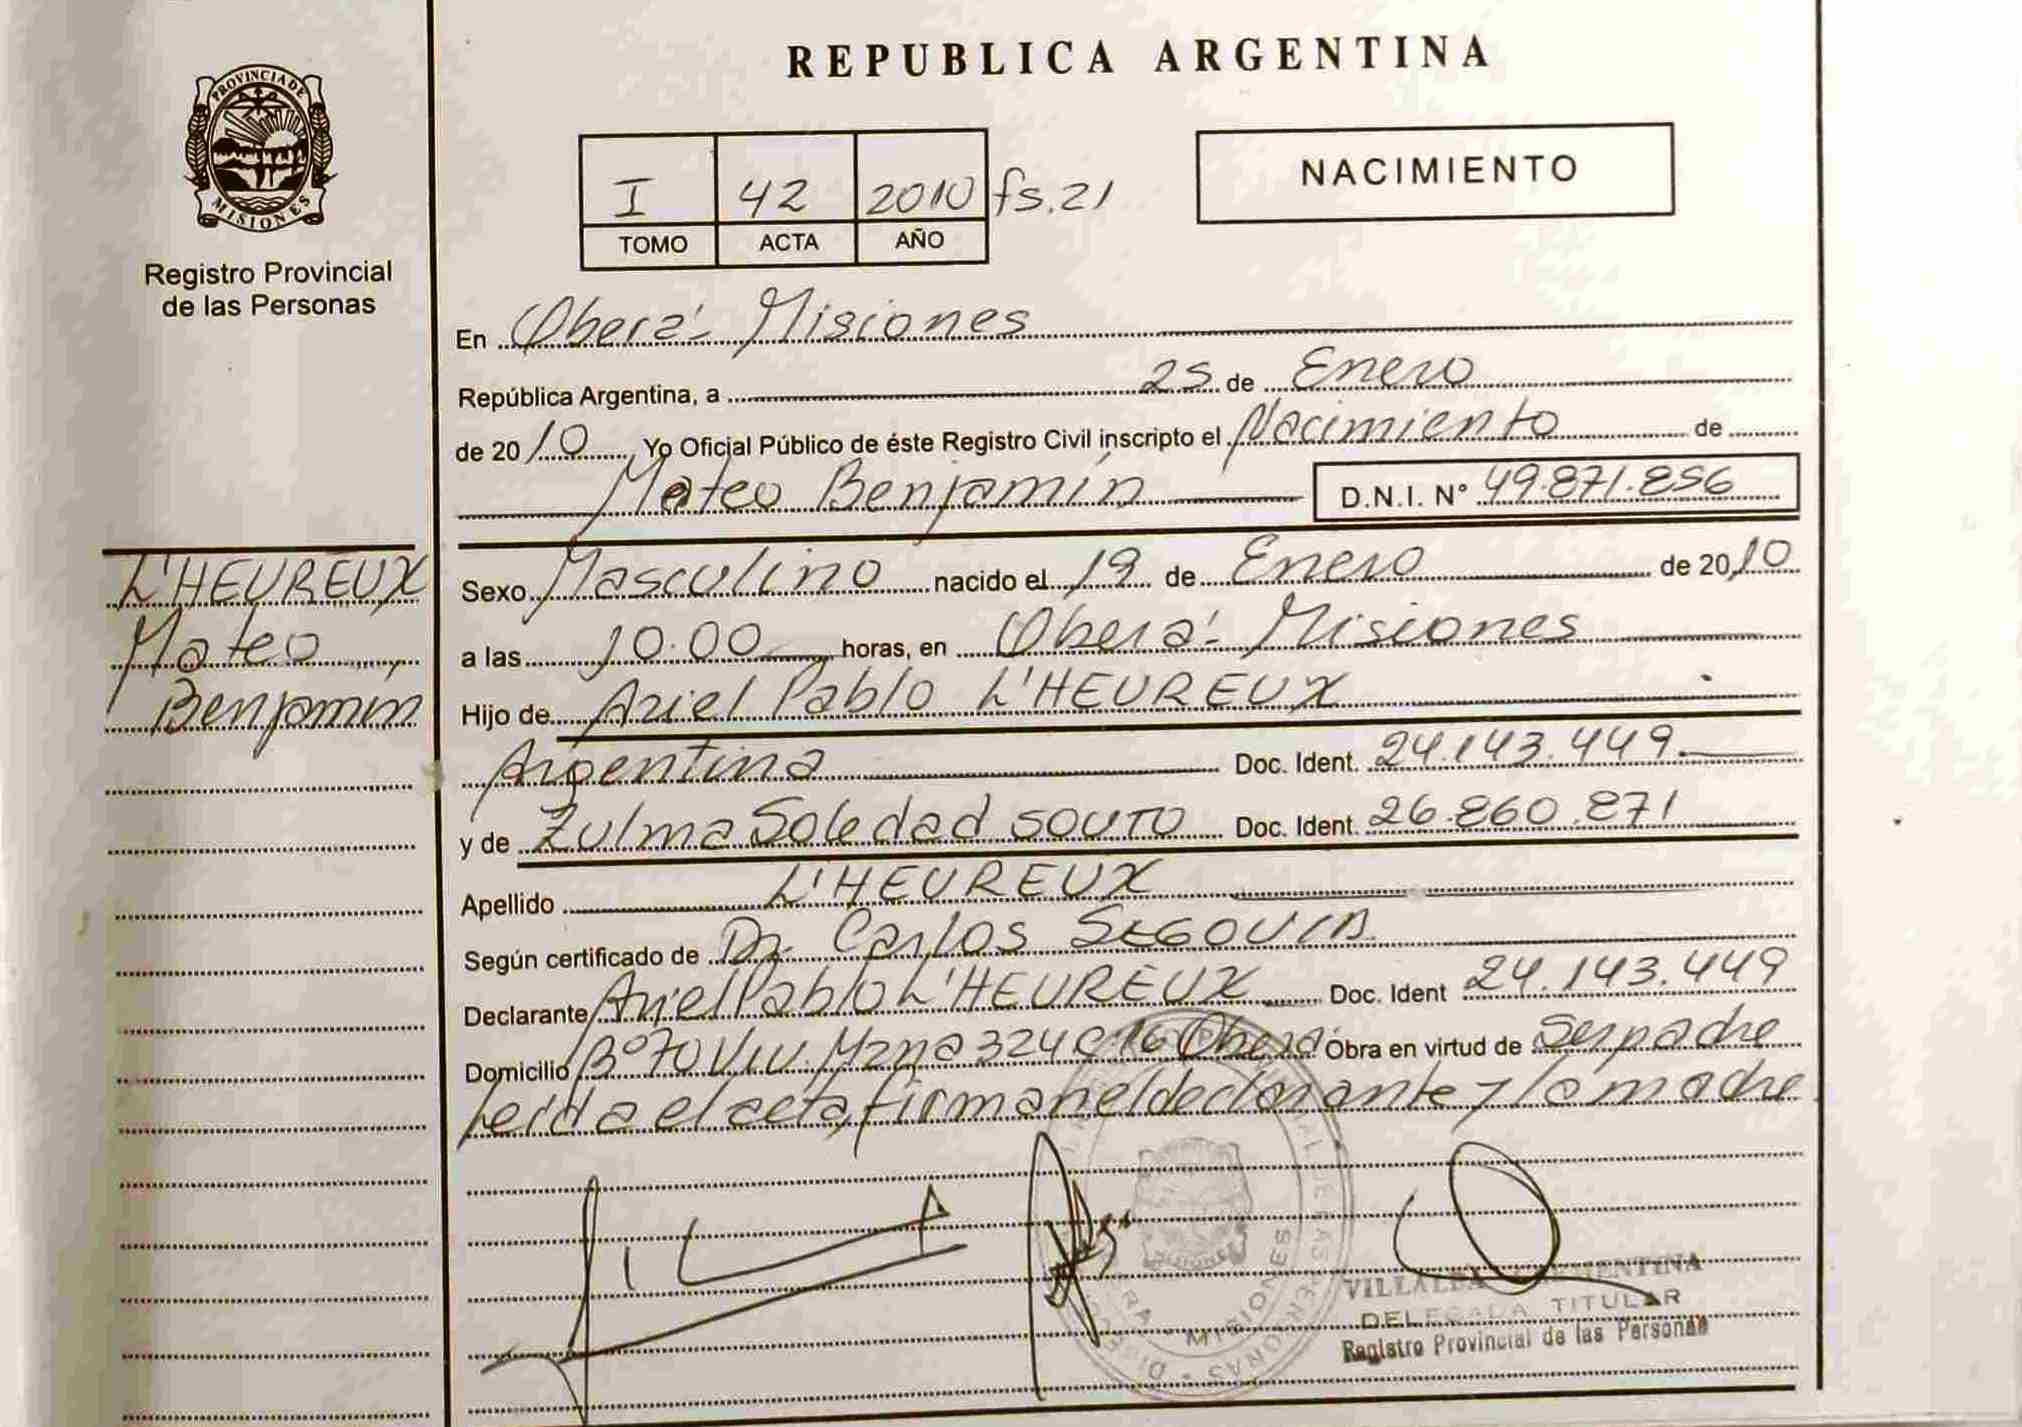 REPUBLICA ARGENTINA
PROVINCIA DE
MISIONES
Registro Provincial
de las Personas
I 42 2010 fs. 21
TOMO ACTA AÑO
NACIMIENTO
En Oberá - Misiones
República Argentina, a 25 de Enero
de 2010 Yo Oficial Público de éste Registro Civil inscripto el Nacimiento de
Mateo Benjamín D.N.I. N° 49.871.856
L'HEUREUX
Mateo
Benjamín
Sexo Masculino nacido el 19 de Enero de 2010
a las 10.00 horas, en Oberá - Misiones
Hijo de Ariel Pablo L'HEUREUX
Argentina Doc. Ident. 24.143.449.
y de Zulma Soledad SOUTO Doc. Ident. 26.860.871
Apellido L'HEUREUX
Según certificado de Dr. Carlos SEGOVIA
Declarante Ariel Pablo L'HEUREUX Doc. Ident 24.143.449
Domicilio B° 70 Viv. Mzna 324 C 16 Oberá Obra en virtud de Ser padre
Leída el acta, firman el declarante y la madre
MISIONES
VILLALBA
DELEGADA TITULAR
Registro Provincial de las Personas